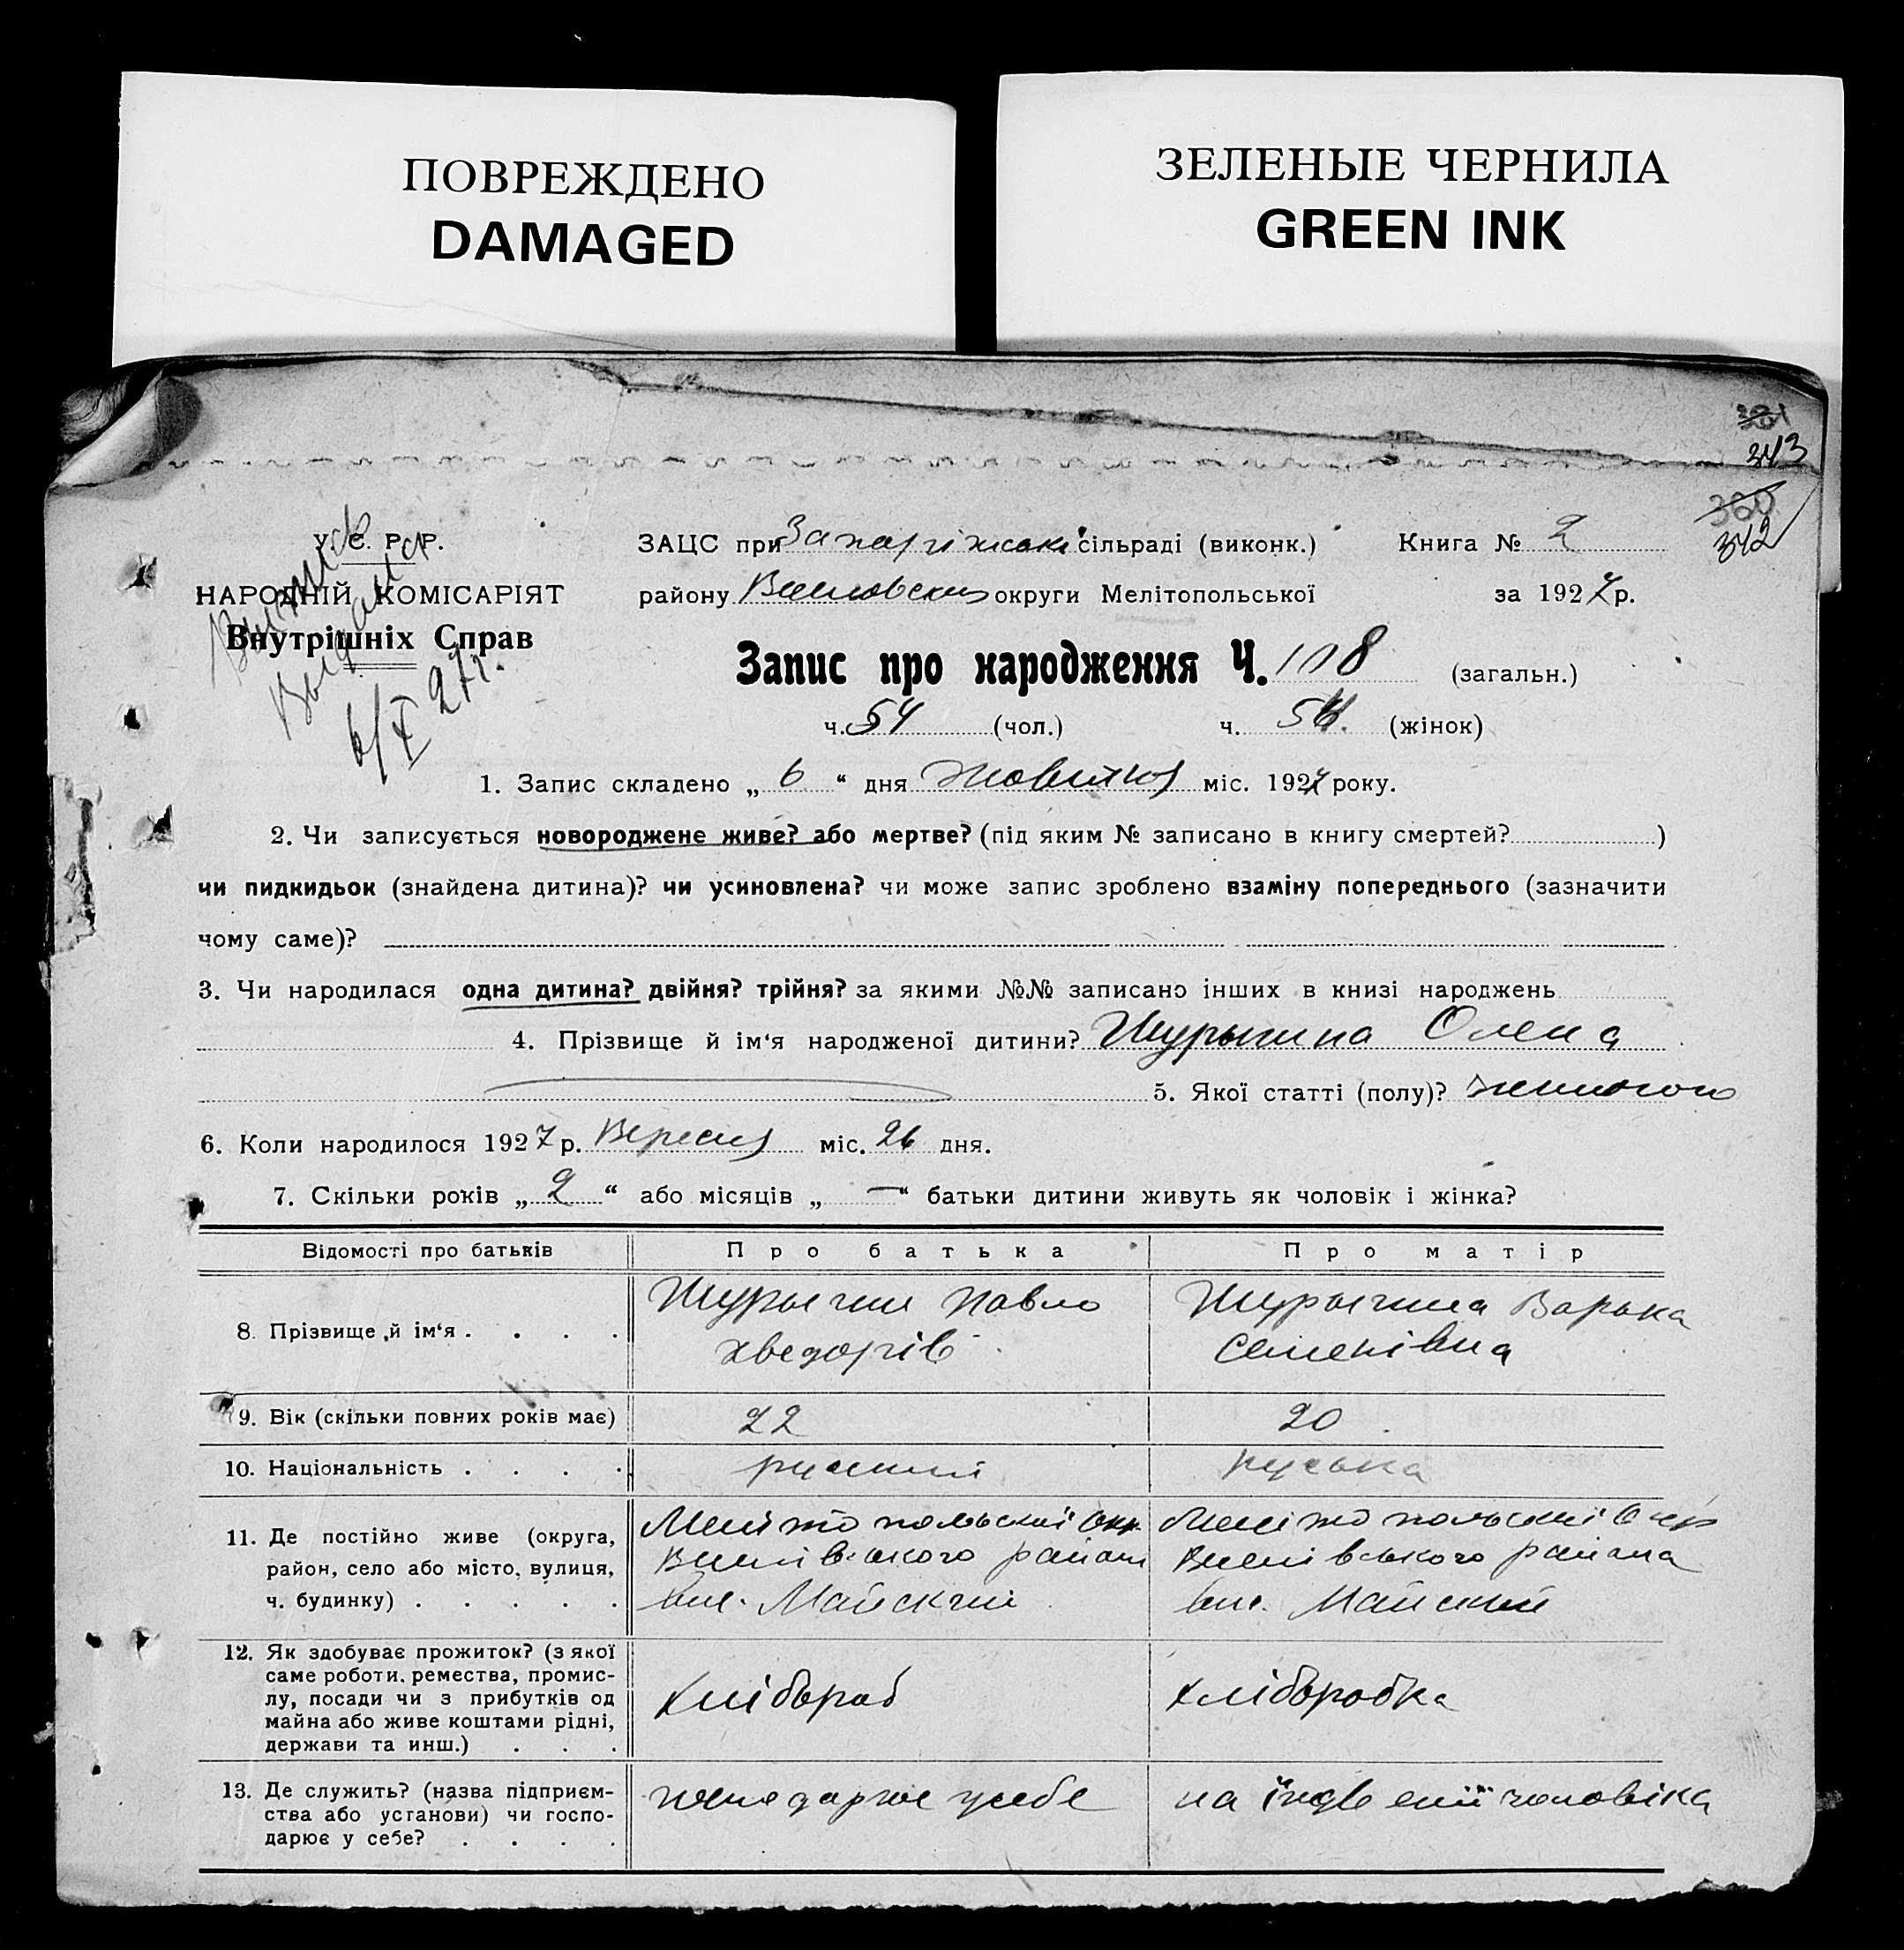 ПОВРЕЖДЕНО
DAMAGED
ЗЕЛЕНЫЕ ЧЕРНИЛА
GREEN INK
343
342
У. С. Р. Р.
НАРОДНІЙ КОМІСАРІЯТ
Внутрішніх Справ
6/X 27г.
ЗАЦС при Запоріжські сільраді (виконк.) Книга № 2
району округи Мелітопольської за 1927 р.
Запис про народження Ч. 108 (загальн.)
ч. 54 (чол.) ч. 54. (жінок)
1. Запис складено „ 6 “ дня Жовтня міс. 1927 року.
2. Чи записується новороджене живе? або мертве? (під яким № записано в книгу смертей? )
чи пидкидьок (знайдена дитина)? чи усиновлена? чи може запис зроблено взаміну попереднього (зазначити
чому саме)?
3. Чи народилася одна дитина? двійня? трійня? за якими №№ записано інших в книзі народжень
4. Прізвище й ім‘я народженої дитини? Шурыгина Олена
5. Якої статті (полу)? жиночого
6. Коли народилося 1927 р. Вересня міс. 26 дня.
7. Скільки років „ 2 “ або місяців „ — “ батьки дитини живуть як чоловік і жінка?
Відомості про батьків Про батька Про матір
8. Прізвище й ім‘я . . . . Шурыгин Павло Шурыгина Варька
Хведорів Семенівна
9. Вік (скільки повних років має) 22 20
10. Національність . . . . руський руська
11. Де постійно живе (округа, Мелітопольскиї Окр. Мелітопольскиї Окр
район, село або місто, вулиця, району района
ч. будинку) . . . . . Майский Майский
12. Як здобуває прожиток? (з якої
саме роботи, ремества, промис-
лу, посади чи з прибутків од Хлібороб Хліборобка
майна або живе коштами рідні,
держави та инш.) . . .
13. Де служить? (назва підприєм- усебе на чоловіка
ства або установи) чи госпо-
дарює у себе? . . . .